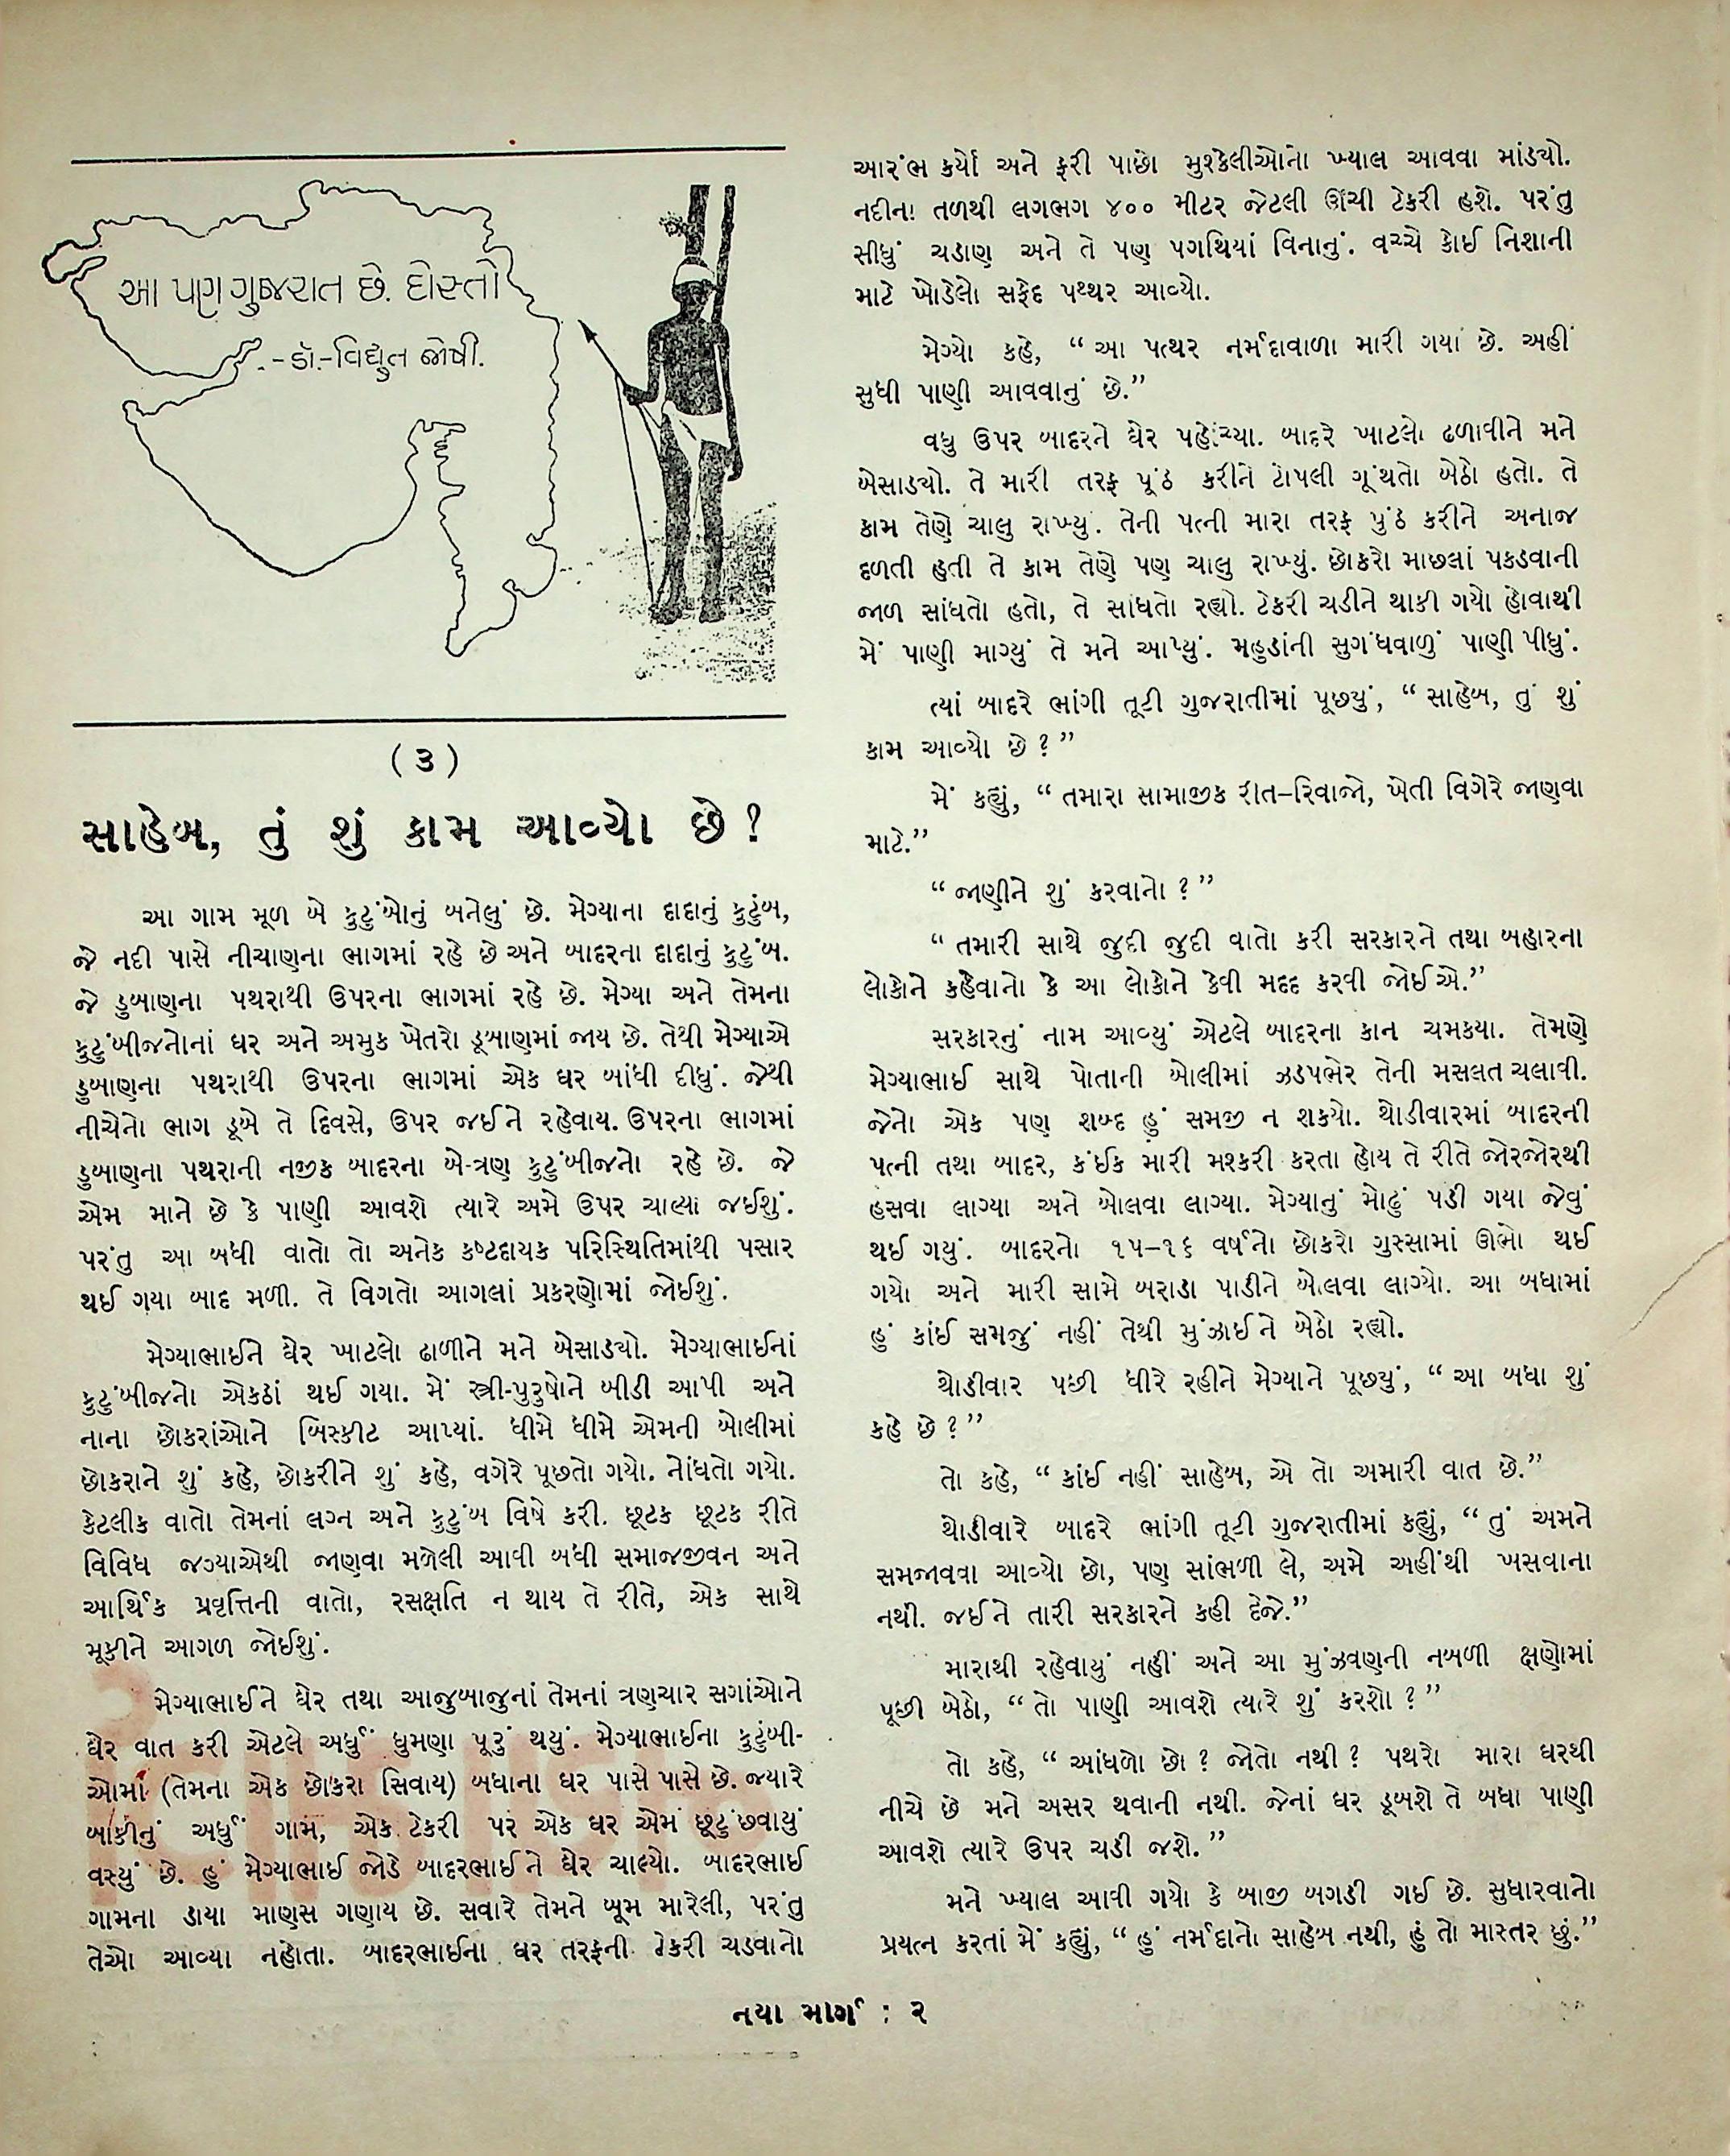 આ પણ ગુજરાત છે. દોસ્તો
-ડૉ.-વિદ્યુત જોષી.
(૩)
સાહેબ, તું શું કામ આવ્યો છે?
આ ગામ મૂળ બે કુટુંબોનું બનેલું છે. મેગ્યાના દાદાનું કુટુંબ,
જે નદી પાસે નીચાણના ભાગમાં રહે છે અને બાદરના દાદાનું કુટુંબ.
જે ડુબાણના પથરાથી ઉપરના ભાગમાં રહે છે. મેગ્યા અને તેમના
કુટુંબીજનોનાં ઘર અને અમુક ખેતરો ડૂબાણમાં જાય છે. તેથી મેગ્યાએ
ડુબાણના પથરાથી ઉપરના ભાગમાં એક ઘર બાંધી દીધું. જેથી
નીચેનો ભાગ ડૂબે તે દિવસે, ઉપર જઈને રહેવાય. ઉપરના ભાગમાં
ડુબાણના પથરાની નજીક બાદરના બે-ત્રણ કુટુંબીજનો રહે છે. જે
એમ માને છે કે પાણી આવશે ત્યારે અમે ઉપર ચાલ્યા જઈશું.
પરંતુ આ બધી વાતો તો અનેક કષ્ટદાયક પરિસ્થિતિમાંથી પસાર
થઈ ગયા બાદ મળી. તે વિગતો આગલાં પ્રકરણોમાં જોઈશું.
મેગ્યાભાઈને ઘેર ખાટલો ઢાળીને મને બેસાડ્યો. મેગ્યાભાઈનાં
કુટુંબીજનો એકઠાં થઈ ગયા. મેં સ્ત્રી-પુરુષોને બીડી આપી અને
નાના છોકરાંઓને બિસ્કીટ આપ્યાં. ધીમે ધીમે એમની બોલીમાં
છોકરાને શું કહે, છોકરીને શું કહે, વગેરે પૂછતો ગયો. નોંધતો ગયો.
કેટલીક વાતો તેમનાં લગ્ન અને કુટુંબ વિષે કરી. છૂટક છૂટક રીતે
વિવિધ જગ્યાએથી જાણવા મળેલી આવી બધી સમાજજીવન અને
આર્થિક પ્રવૃત્તિની વાતો, રસક્ષતિ ન થાય તે રીતે, એક સાથે
મૂકીને આગળ જોઈશું.
મેગ્યાભાઈને ઘેર તથા આજુબાજુનાં તેમનાં ત્રણચાર સગાંઓને
ઘેર વાત કરી એટલે અર્ધું ઘુમણા પૂરું થયું. મેગ્યાભાઈના કુટુંબી-
ઓમાં (તેમના એક છોકરા સિવાય) બધાના ઘર પાસે પાસે છે. જ્યારે
બાકીનું અર્ધું ગામ, એક ટેકરી પર એક ઘર એમ છૂટું છવાયું
વસ્યું છે. હું મેગ્યાભાઈ જોડે બાદરભાઈને ઘેર ચાલ્યો. બાદરભાઈ
ગામના ડાયા માણસ ગણાય છે. સવારે તેમને બૂમ મારેલી, પરંતુ
તેઓ આવ્યા નહોતા. બાદરભાઈના ઘર તરફની ટેકરી ચડવાનો
આરંભ કર્યો અને ફરી પાછો મુશ્કેલીઓનો ખ્યાલ આવવા માંડ્યો.
નદીના તળથી લગભગ ૪૦૦ મીટર જેટલી ઊંચી ટેકરી હશે. પરંતુ
સીધું ચડાણ અને તે પણ પગથિયાં વિનાનું. વચ્ચે કોઈ નિશાની
માટે ખોડેલો સફેદ પથ્થર આવ્યો.
મેગ્યો કહે, “આ પત્થર નર્મદાવાળા મારી ગયાં છે. અહીં
સુધી પાણી આવવાનું છે.”
વધુ ઉપર બાદરને ઘેર પહોંચ્યા. બાદરે ખાટલો ઢળાવીને મને
બેસાડ્યો. તે મારી તરફ પૂંઠ કરીને ટોપલી ગૂંથતો બેઠો હતો. તે
કામ તેણે ચાલુ રાખ્યુ. તેની પત્ની મારા તરફ પુંઠ કરીને અનાજ
દળતી હતી તે કામ તેણે પણ ચાલુ રાખ્યું. છોકરો માછલાં પકડવાની
જાળ સાંધતો હતો, તે સાંધતો રહ્યો. ટેકરી ચડીને થાકી ગયો હોવાથી
મેં પાણી માગ્યું તે મને આપ્યું. મહુડાંની સુગંધવાળું પાણી પીધું.
ત્યાં બાદરે ભાંગી તૂટી ગુજરાતીમાં પૂછ્યું, “સાહેબ, તું શું
કામ આવ્યો છે?”
મેં કહ્યું, “તમારા સામાજીક રીત–રિવાજો, ખેતી વિગેરે જાણવા
માટે.”
“જાણીને શું કરવાનો?”
“તમારી સાથે જુદી જુદી વાતો કરી સરકારને તથા બહારના
લોકોને કહેવાનો કે આ લોકોને કેવી મદદ કરવી જોઈએ.”
સરકારનું નામ આવ્યું એટલે બાદરના કાન ચમક્યા. તેમણે
મેગ્યાભાઈ સાથે પોતાની બોલીમાં ઝડપભેર તેની મસલત ચલાવી.
જેનો એક પણ શબ્દ હું સમજી ન શક્યો. થોડીવારમાં બાદરની
પત્ની તથા બાદર, કંઈક મારી મશ્કરી કરતા હોય તે રીતે જોરજોરથી
હસવા લાગ્યા અને બોલવા લાગ્યા. મેગ્યાનું મોઢું પડી ગયા જેવું
થઈ ગયું. બાદરનો ૧૫–૧૬ વર્ષનો છોકરો ગુસ્સામાં ઊભો થઈ
ગયો અને મારી સામે બરાડા પાડીને બોલવા લાગ્યો. આ બધામાં
હું કાંઈ સમજું નહીં તેથી મુંઝાઈને બેઠો રહ્યો.
થોડીવાર પછી ધીરે રહીને મેગ્યાને પૂછ્યું, “આ બધા શું
કહે છે?”
તો કહે, “કાંઈ નહીં સાહેબ, એ તો અમારી વાત છે.”
થોડીવારે બાદરે ભાંગી તૂટી ગુજરાતીમાં કહ્યું, “તું અમને
સમજાવવા આવ્યો છો, પણ સાંભળી લે, અમે અહીંથી ખસવાના
નથી. જઈને તારી સરકારને કહી દેજે.”
મારાથી રહેવાયું નહીં અને આ મુંઝવણની નબળી ક્ષણોમાં
પૂછી બેઠો, “તો પાણી આવશે ત્યારે શું કરશો?”
તો કહે, “આંધળો છો? જોતો નથી? પથરો મારા ઘરથી
નીચે છે મને અસર થવાની નથી. જેનાં ઘર ડૂબશે તે બધા પાણી
આવશે ત્યારે ઉપર ચડી જશે.”
મને ખ્યાલ આવી ગયો કે બાજી બગડી ગઈ છે. સુધારવાનો
પ્રયત્ન કરતાં મેં કહ્યું, “હું નર્મદાનો સાહેબ નથી, હું તો માસ્તર છું.”
નયા માર્ગ : ૨